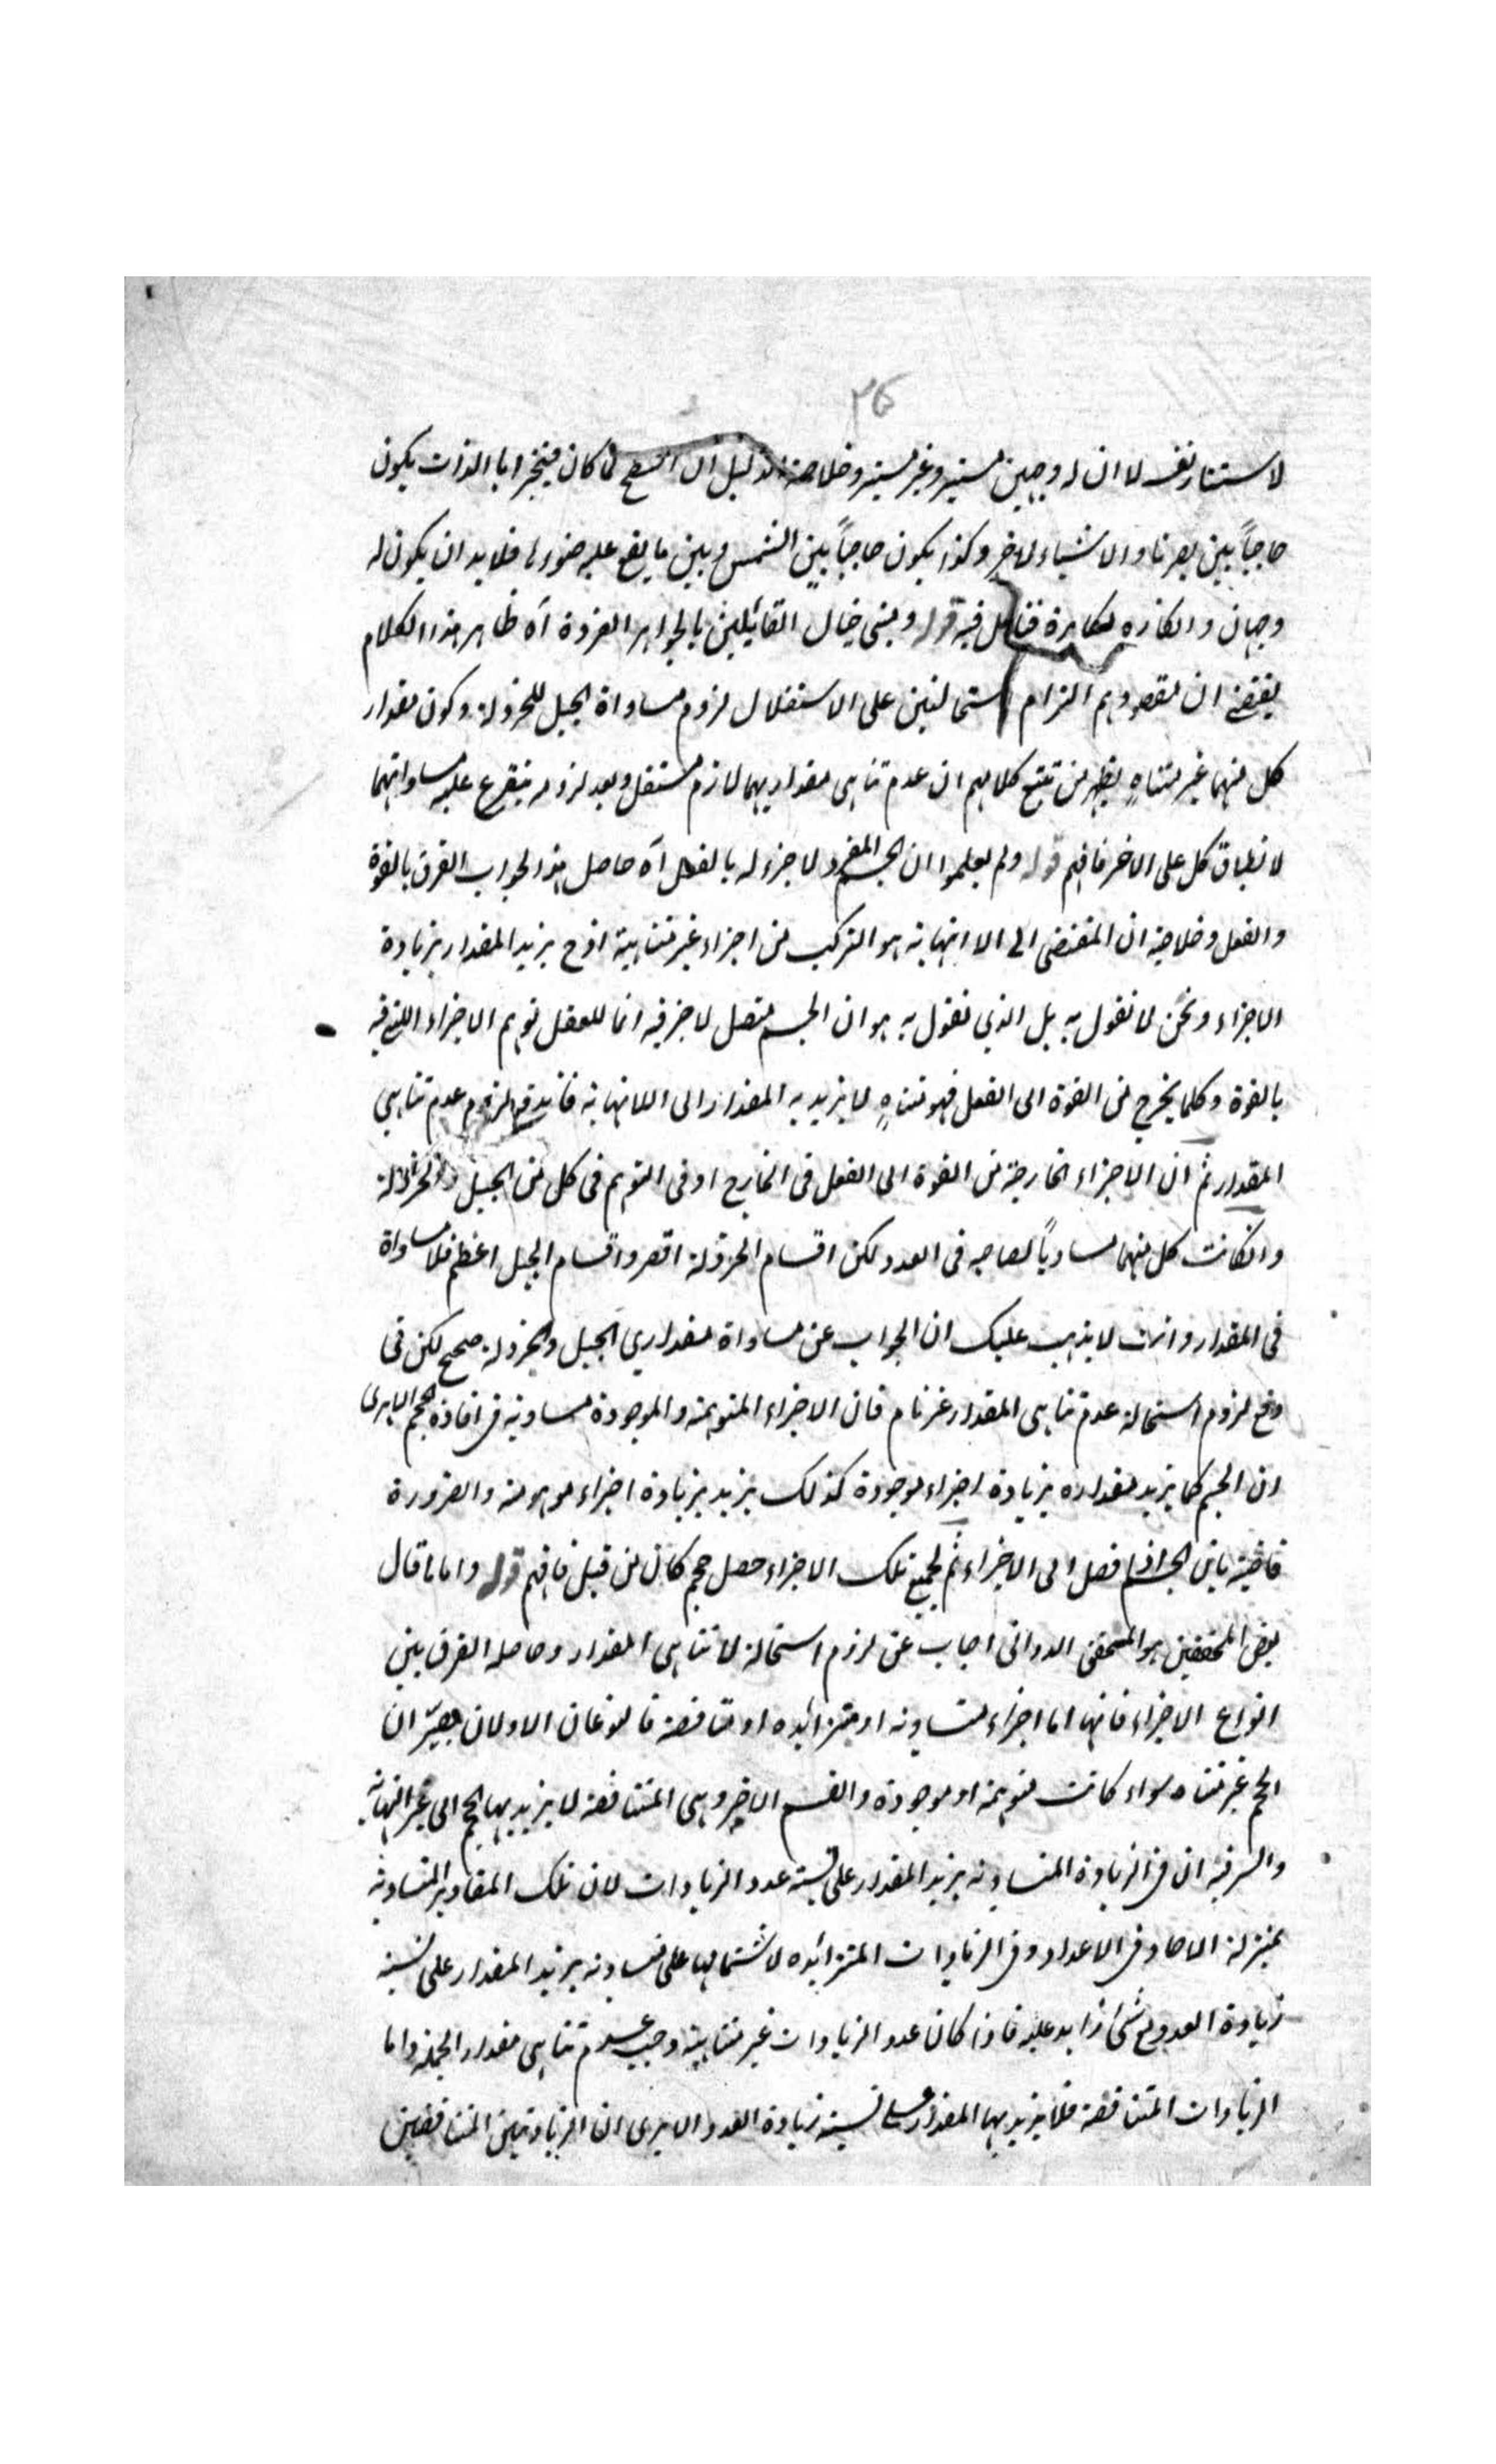 ٢٥
لاستنار نفسه لا ان له وجهين مستنير وغير مستنير وخلاصة الدليل ان السطح لما كان متحيزا بالذات يكون
حاجباً بين بصرنا والاشياء الاخر وكذا يكون حاجباً بين الشمس وبين ما يقع عليه ضوءها فلا بد ان يكون له
وجهان وانكاره مكابرة فتامل فيه قوله ومبنى خيال القائلين بالجواهر الفردة آه ظاهر هذا الكلام
يقتضى ان مقصودهم الزام استحالتين على الاستقلال لزوم مساواة الجبل للخردلة وكون مقدار
كل منهما غير متناهٍ يظهر من تتبع كلامهم ان عدم تناهى مقداريهما لازم مستقل وبعد لزومه يتفرع عليه مساواتهما
لانطباق كل على الاخر فافهم قوله ولم يعلموا ان الجسم المفرد لا جزء له بالفعل آه حاصل هذا الجواب الفرق بالقوة
والفعل وخلاصته ان المقتضى الى الا انتهاية هو التركب من اجزاء غير متناهية اذ ح يزيد المقدار بزيادة
الاجزاء ونحن لا نقول به بل الذي نقول به هو ان الجسم متصل لا جزء فيه انما للعقل توهم الاجزاء التى فيه
بالقوة وكلما يخرج من القوة الى الفعل فهو متناهٍ لا يزيد به المقدار الى اللانهاية فاندفع لزوم عدم تناهي
المقدار ثم ان الاجزاء الخارجة من القوة الى الفعل فى الخارج او فى التوهم فى كل من الجبل والخردلة
وانكانت كل منهما مساوياً لصاحبه فى العدد لكن اقسام الخردلة اقصر واقسام الجبل اعظم فلا مساواة
فى المقدار وانت لا يذهب عليك ان الجواب عن مساواة مقداري الجبل والخردلة صحيح لكن فى
دفع لزوم استحالة عدم تناهى المقدار غير تام فان الاجزاء المتوهمة والموجودة مساوية فى افادة الحجم الا يرى
ان الجسم كما يزيد مقداره بزيادة اجزاء موجودة كذلك يزيد بزيادة اجزاء موهومة والضرورة
قاضية بان الجسم اذا فصل الى الاجزاء ثم جمع تلك الاجزاء حصل حجم كان من قبل فافهم قوله واما ما قال
بعض المحققين هو المحقق الدوانى اجاب عن لزوم استحالة لا تناهى المقدار وحاصله الفرق بين
انواع الاجزاء فانها اما اجزاء متساوية او متزائده او متناقصة فالنوعان الاولان يصيّران
الحجم غير متناه سواء كانت متوهمة او موجودة والقسم الاخير وهى المتناقصة لا يزيد بها الحجم الى غير النهاية
والسر فيه ان فى الزيادة المتساوية يزيد المقدار على نسبة عدد الزيادات لان تلك المقادير المتساوية
بمنزلة الاحاد فى الاعداد وفى الزيادات المتزائده لاشتمالها على متساوية يزيد المقدار على نسبة
زيادة العدد مع شئ زايد عليه فاذا كان عدد الزيادات غير متناهية وجب عدم تناهى مقدار الجملة واما
الزيادات المتناقصة فلا يزيد بها المقدار على نسبة زيادة العدد الا يرى ان الزيادتين المتناقصتين